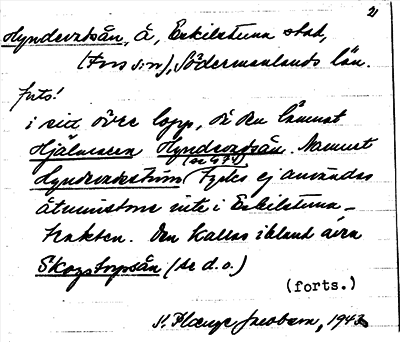 21
Hyndevadsån, å, Eskilstuna stad,
(Fors sn), Södermanlands län.
forts!
i sitt övre lopp, då den lämnat
Hjälmaren Hyndevadsån. Namnet
(se d.o.)
Hyndevadsström tydes ej användas
åtminstone inte i Eskilstuna-
trakten. Den kallas ibland även
Skogstorpsån (se d.o.)
(forts.)
Jacobson, 1943